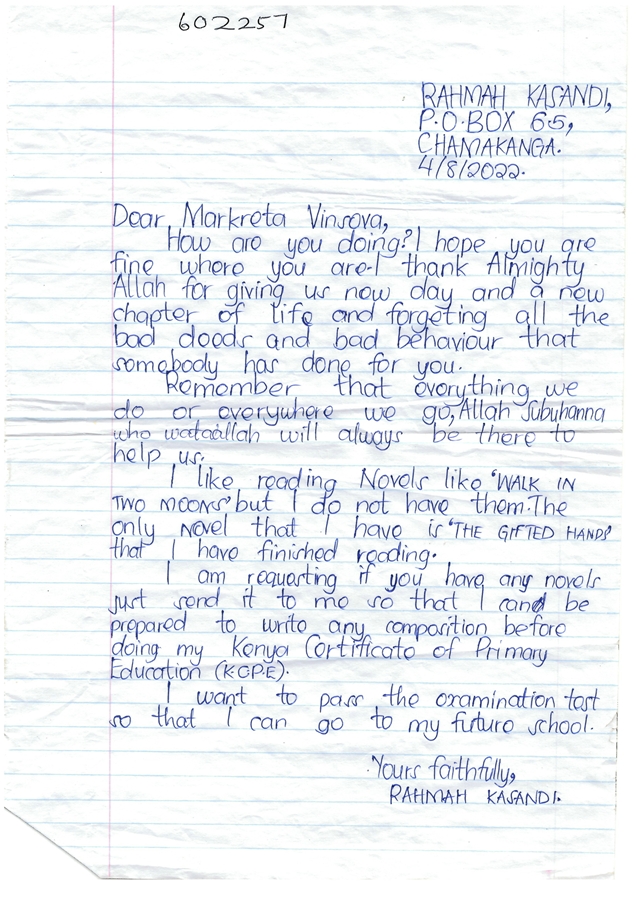 602257
RAHMAH KASANDI,
P.O.BOX 65,
CHAMAKANGA.
4/8/2022.
Dear Markreta Vinsova,
How are you doing? I hope you are
fine where you are. I thank Almighty
Allah for giving us now day and a now
chapter of life and forgeting all the
bad doods and bad behaviour that
somebody has done for you.
Remember that everything we
do or everywhere we go, Allah Subuhanna
who wataallah will always be there to
help us.
I like reading Novels like 'WALK IN
TWO MOONS' but I do not have them. The
only Novel that I have is 'THE GIFTED HANDS'
that I have finished reading.
I am requesting if you have any novels
just send it to me so that I can be
prepared to write any composition before
doing my Kenya Certificate of Primary
Education (KCPE).
I want to pass the examination test
so that I can go to my future school.
Yours faithfully,
RAHMAH KASANDI.